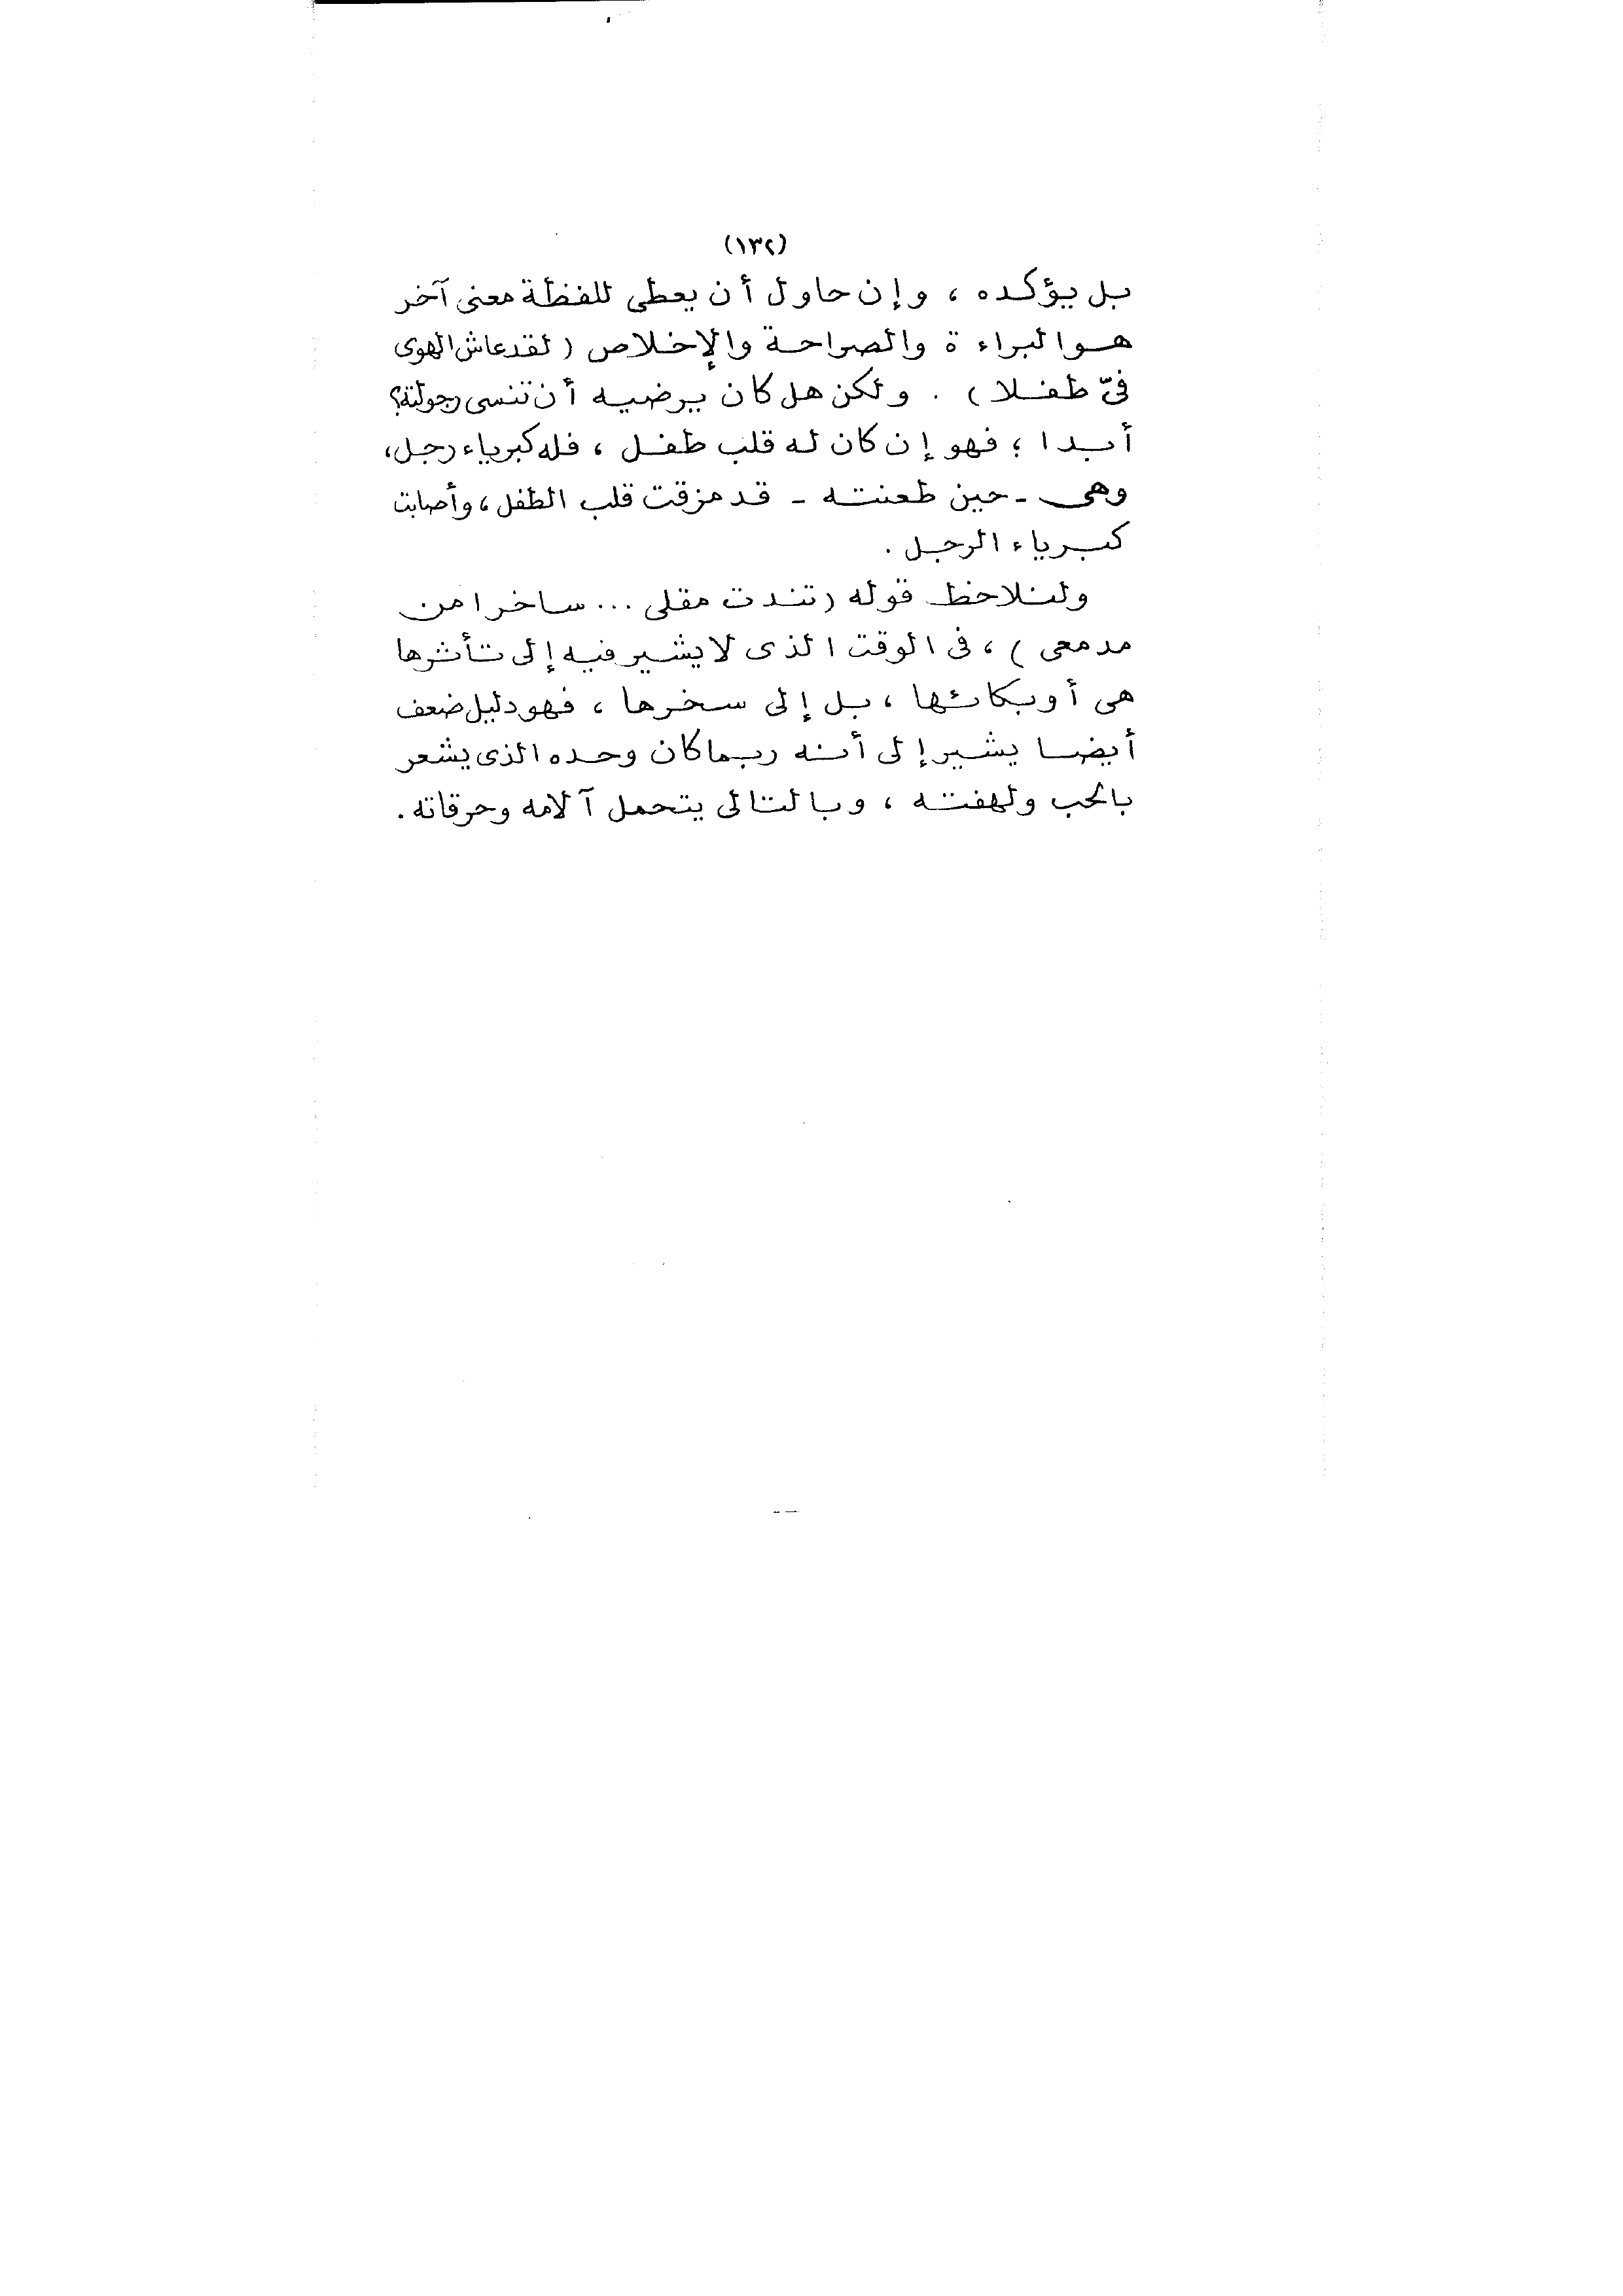 (١٣٢)
بل يؤكده ، وإن حاول أن يعطى للفظة معنى آخر
هو البراءة والصراحة والإخلاص ( لقد عاش الهوى
فىّ طفلا ) . ولكن هل كان يرضيه أن تنسى رجولته؟
أبدا ؛ فهو إن كان له قلب طفل ، فله كبرياء رجل،
وهى - حين طعنته - قد مزقت قلب الطفل ، وأصابت
كبرياء الرجل .
ولنلاحظ قوله ( تندت مقلى ... ساخرا من
مدمعى ) ، فى الوقت الذى لا يشير فيه إلى تأثرها
هى أو بكائها ، بل إلى سخرها ، فهو دليل ضعف
أيضا يشير إلى أنه ربما كان وحده الذى يشعر
بالحب ولهفته ، وبالتالى يتحمل آلامه وحرقاته .